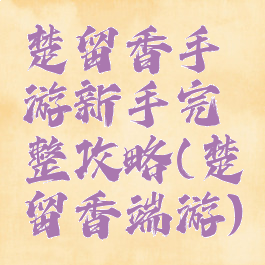 楚留香手
游新手完
整攻略(楚
留香端游)